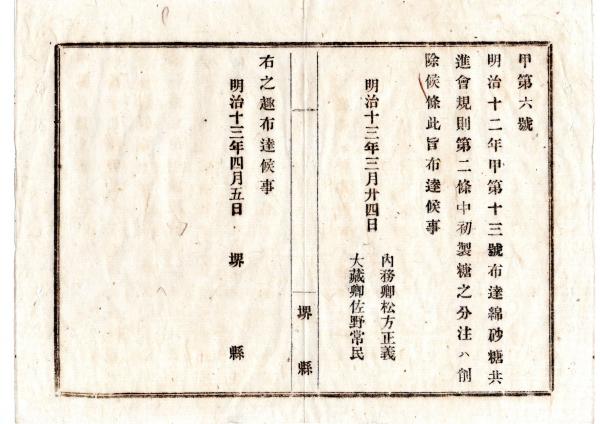 甲第六號
明治十二年甲第十三號布達綿砂糖共
進會規則第二條中初製糖之分注ハ創
除候條此旨布達候事
明治十三年三月廿四日
內務卿松方正義
大藏卿佐野常民
堺縣
右之趣布達候事
明治十三年四月五日
堺縣